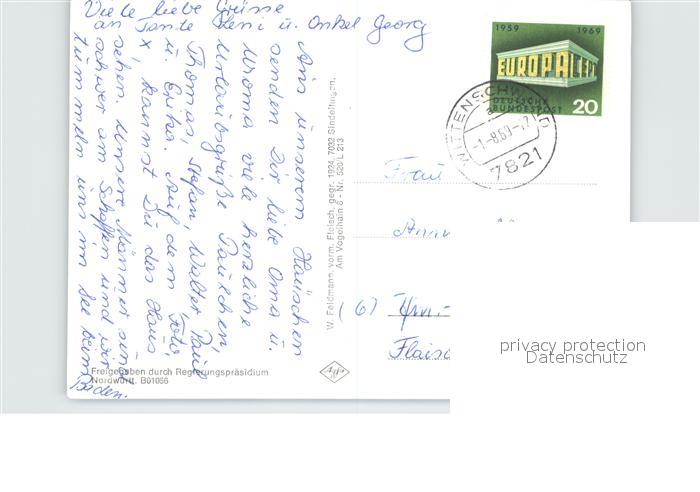 Viele liebe Grüsse
an Tante Leni u. Onkel Georg
Aus unserem Häuschen
senden Dir liebe Oma u.
Uroma viele herzliche
Urlaubsgrüße Paulchen,
Thomas, Stefan, Walter, Paul
u. Erika. Auf dem Foto,
x kannst Du das Haus
sehen. Unsere Männer sind
schwer am Schaffen und wir
tummeln uns im See beim
Baden.
Freigegeben durch Regierungspräsidium
Nordwürtt. B01056
W. Feldmann, vorm. Fleisch, gegr. 1924, 7032 Sindelfingen,
Am Vogelhain 8 - Nr. 520/L 213
Agfa
1959 1969
EUROPA CEPT
DEUTSCHE
BUNDESPOST 20
WITTENSCHWAND
-1-8.69-17
7821
Frau
(6)
privacy protection
Datenschutz